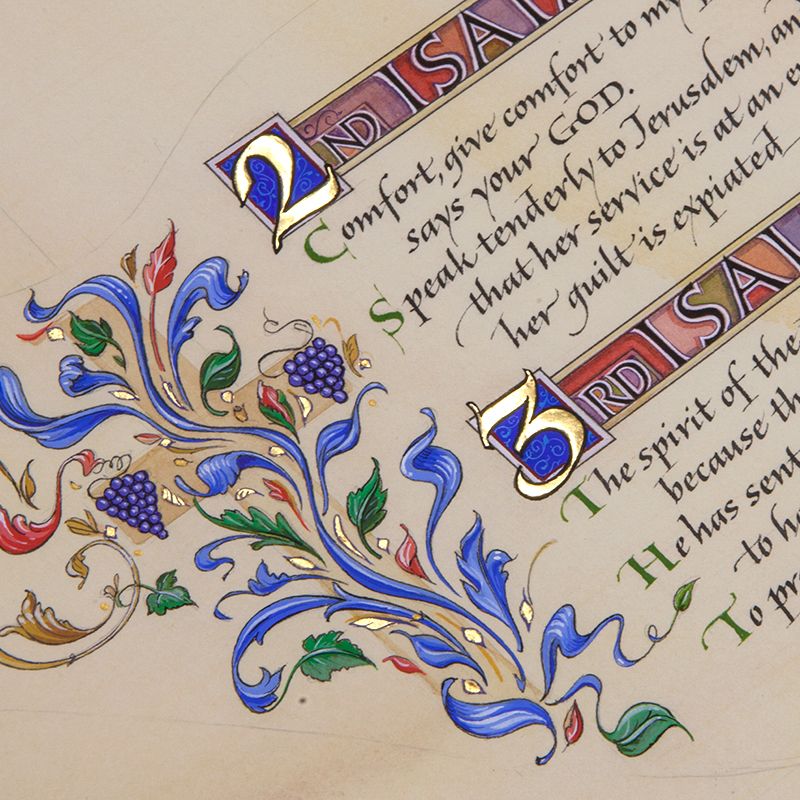 2ND ISAI
Comfort, give comfort to my
says your GOD.
Speak tenderly to Jerusalem, an
that her service is at an e
her guilt is expiated
3RD ISAI
The spirit of the
because th
He has sent
to h
To pr